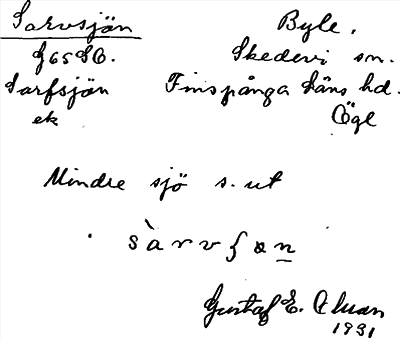 Sarvsjön
Byle.
G65SO.
Skedevi sn.
Sarfsjön
Finspånga läns hd.
ek
Ögl
Mindre sjö s. ut
Gustaf E.
1931